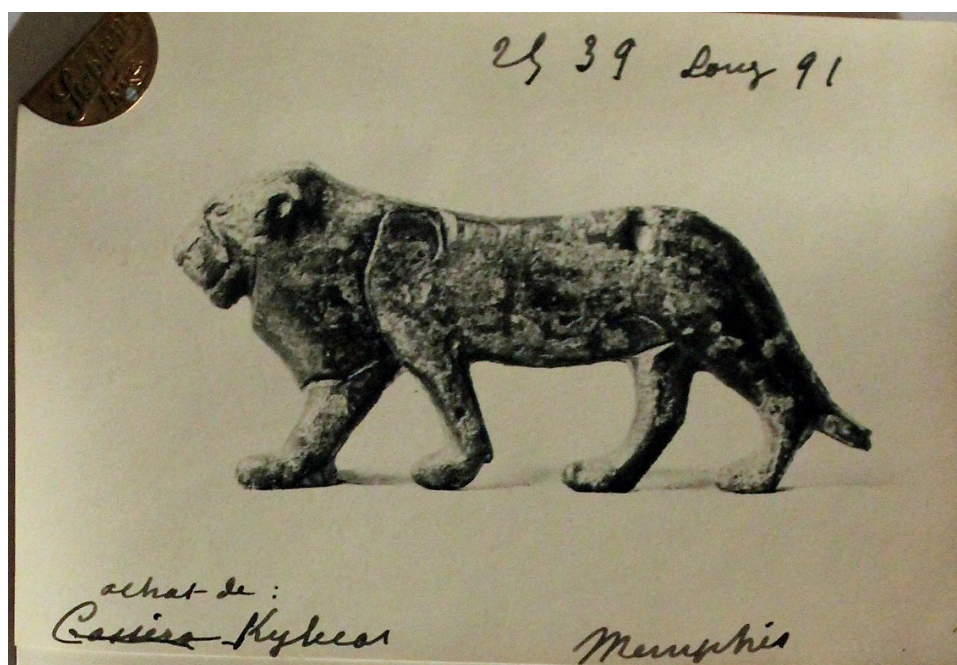 39 Long 91
achat de :
Cassira Kyticas
Memphis